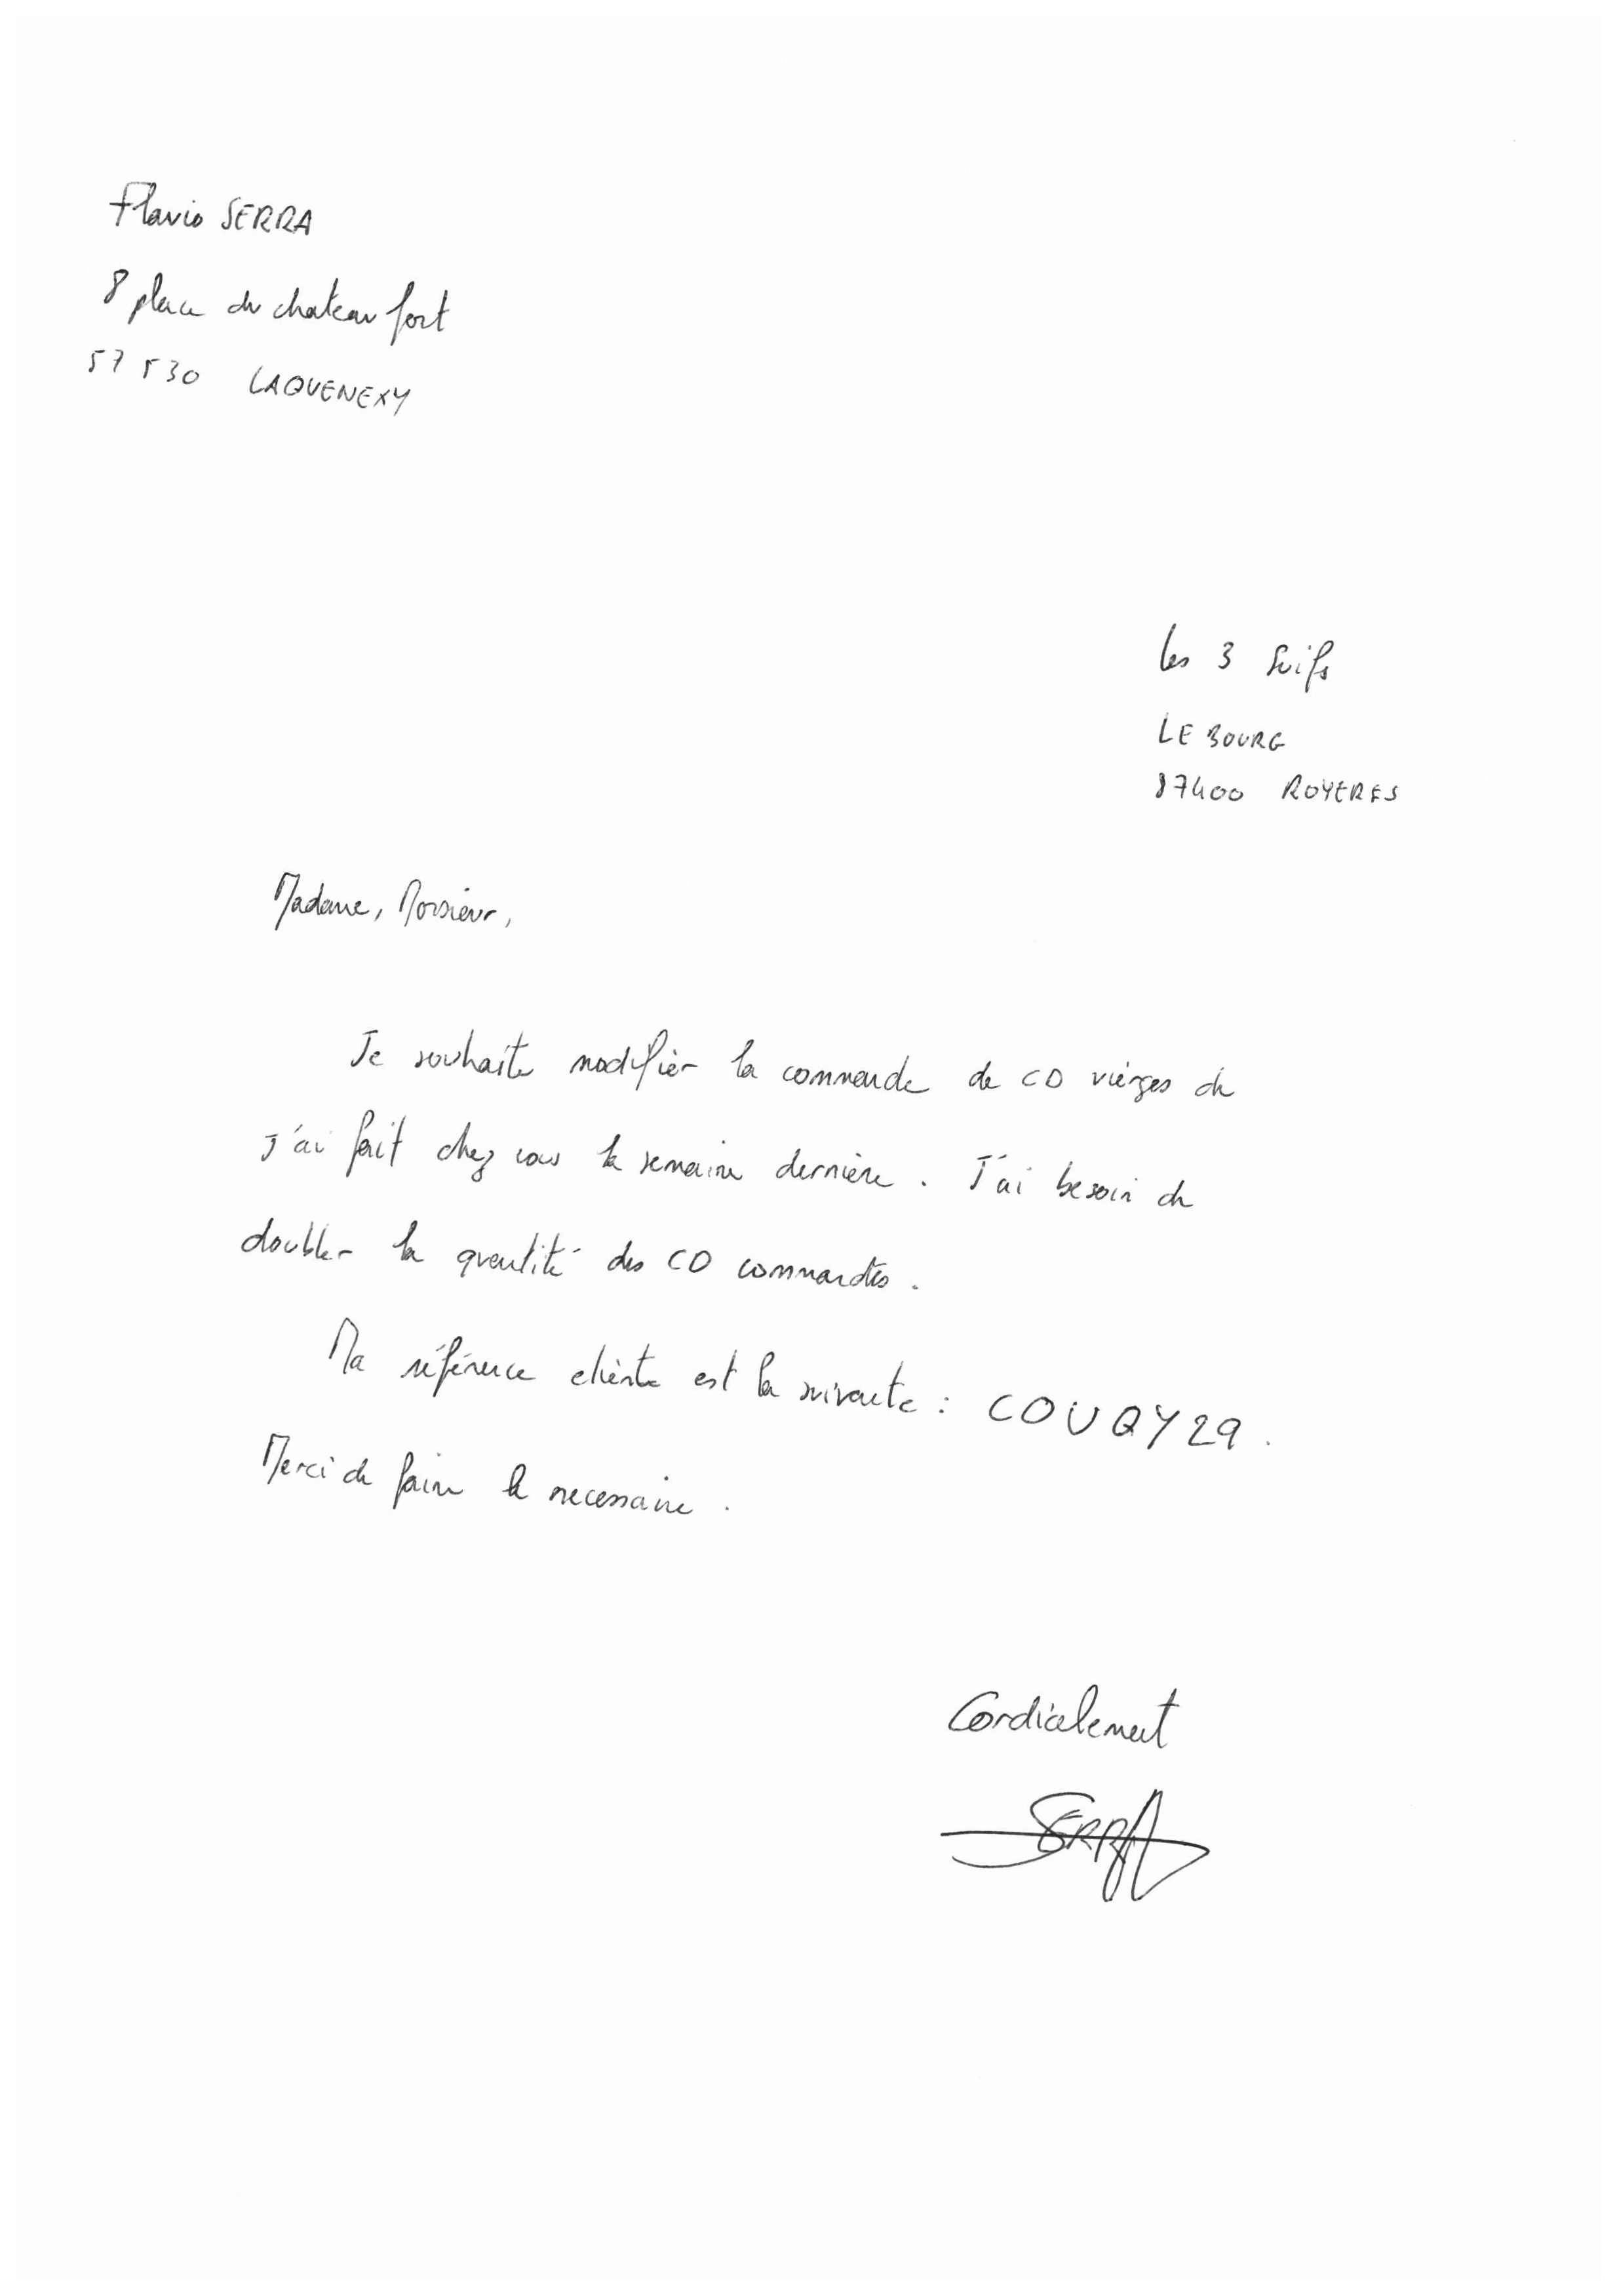 Flavio SERRA
8 place du chateau fort
57530 LAQUENEXY
Les 3 Suifs
LE BOURG
87400 ROYERES
Madame, Monsieur,
Je souhaite modifier la commande de CD vierges de
j'ai fait chez vous la semaine dernière. J'ai besoin de
doubler la quantité des CD commandés.
Ma référence cliente est la suivante : COUQY29.
Merci de faire le necessaire.
Cordialement
SERRA